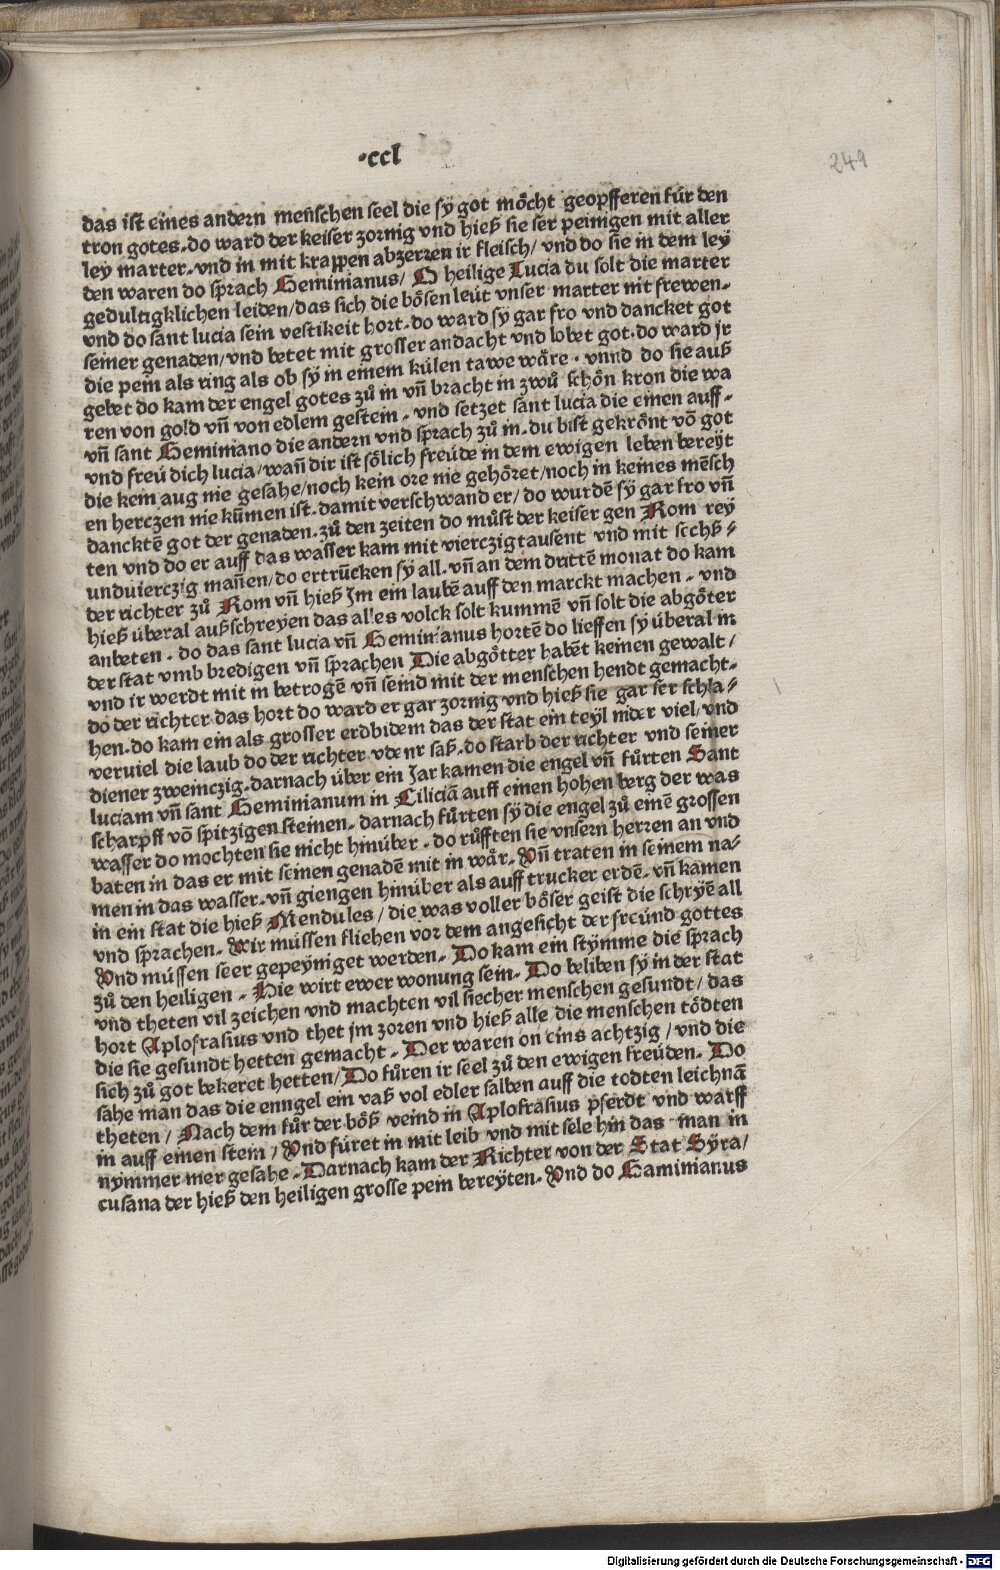 ·ccl
249
das ist eines andern menschen seel die sÿ got möcht geopfferen für den
tron gotes. do ward der keiser zornig vnd hieß sie ser peinigen mit aller
leÿ marter. vnd in mit krappen abzerren ir fleisch/ vnd do sie in dem leÿ
den waren do sprach Geminianus/ O heilige Lucia du solt die marter
gedultigklichen leiden/ das sich die bösen leüt vnser marter nit frewen.
vnd do sant lucia sein vestikeit hort. do ward sÿ gar fro vnd dancket got
seiner genaden/ vnd betet mit grosser andacht vnd lobet got. do ward jr
die pein als ring als ob sÿ in einem külen tawe wäre. vnnd do sie auß
gebet do kam der engel gotes zů in vñ bracht in zwů schön kron die wa
ren von gold vñ von edlem gestein. vnd setzet sant lucia die einen auff.
vñ sant Geminiano die andern vnd sprach zů in. du bist gekrönt võ got
vnd freü dich lucia/ wañ dir ist sölich freüde in dem ewigen leben bereÿt
die kein aug nie gesahe/ noch kein ore nie gehöret/ noch in keines mēsch
en herczen nie kům̄en ist. damit verschwand er/ do wurdē sÿ gar fro vñ
danctkē got der genaden. zů den zeiten do můst der keiser gen Rom reÿ
ten vnd do er auff das wasser kam mit vierczigtausent vnd mit sechß/
unduierczig mañen/ do ertrūcken sÿ all. vñ an dem dritten monat do kam
der richter zů Rom vñ hieß Jm ein laubē auff den marckt machen. vnd
hieß überal außschreÿen das alles volck solt kummē vñ solt die abgöter
anbeten. do das sant lucia vñ Geminianus hortē do lieffen sÿ überal in
der stat vmb bredigen vñ sprachen Die abgötter habēt keinen gewalt/
vnd ir werdt mit in betrogē vñ seind mit der menschen hendt gemacht.
do der richter das hort do ward er gar zornig vnd hieß sie gar ser schla/
hen. do kam ein als grosser erdbidem das der stat ein teÿl nider viel/ vnd
verviel die laub do der richter vdenr saß. do starb der richter vnd seiner
diener zweinczig. darnach über ein Jar kamen die engel vñ fůrten Sant
luciam vñ sant Geminianum in Ciliciā auff einen hohen berg der was
scharpff võ spitzigen steinen. darnach fůrten sÿ die engel zů emē grossen
wasser do mochten sie nicht hinüber. do růfften sie vnsern herren an vnd
baten in das er mit seinen genadē mit in wär. Vñ traten in seinem na/
men in das wasser. vñ giengen hinüber als auff trucker erdē. vñ kamen
in ein stat die hieß Mendules/ die was voller böser geist die schryē all
vnd sprachen. Wir müssen fliehen vor dem angesicht der freünd gottes
Vnd müssen seer gepeÿniget werden. Do kam ein stÿmme die sprach
zů den heiligen. Hie wirt ewer wonung sein. Do beliben sÿ in der stat
vnd theten vil zeichen vnd machten vil siecher menschen gesundt/ das
hort Aplofrasius vnd thet jm zoren vnd hieß alle die menschen tödten
die sie gesundt hetten gemacht. Der waren on eins achtzig/ vnd die
sich zů got bekeret hetten/ Do fůren ir seel zů den ewigen freüden. Do
sahe man das die enngel ein vaß vol edler salben auff die todten leichnā
theten/ Nach dem fůr der böß veind in Aplofrasius pferdt vnd warff
in auff einen stein/ Vnd füret in mit leib vnd mit sele hin das man in
nymmer mer gesahe. Darnach kam der Richter von der Stat Sÿra/
cusana der hieß den heiligen grosse pein bereÿten. Vnd do Gaminianus
Digitalisierung gefördert durch die Deutsche Forschungsgemeinschaft - DFG